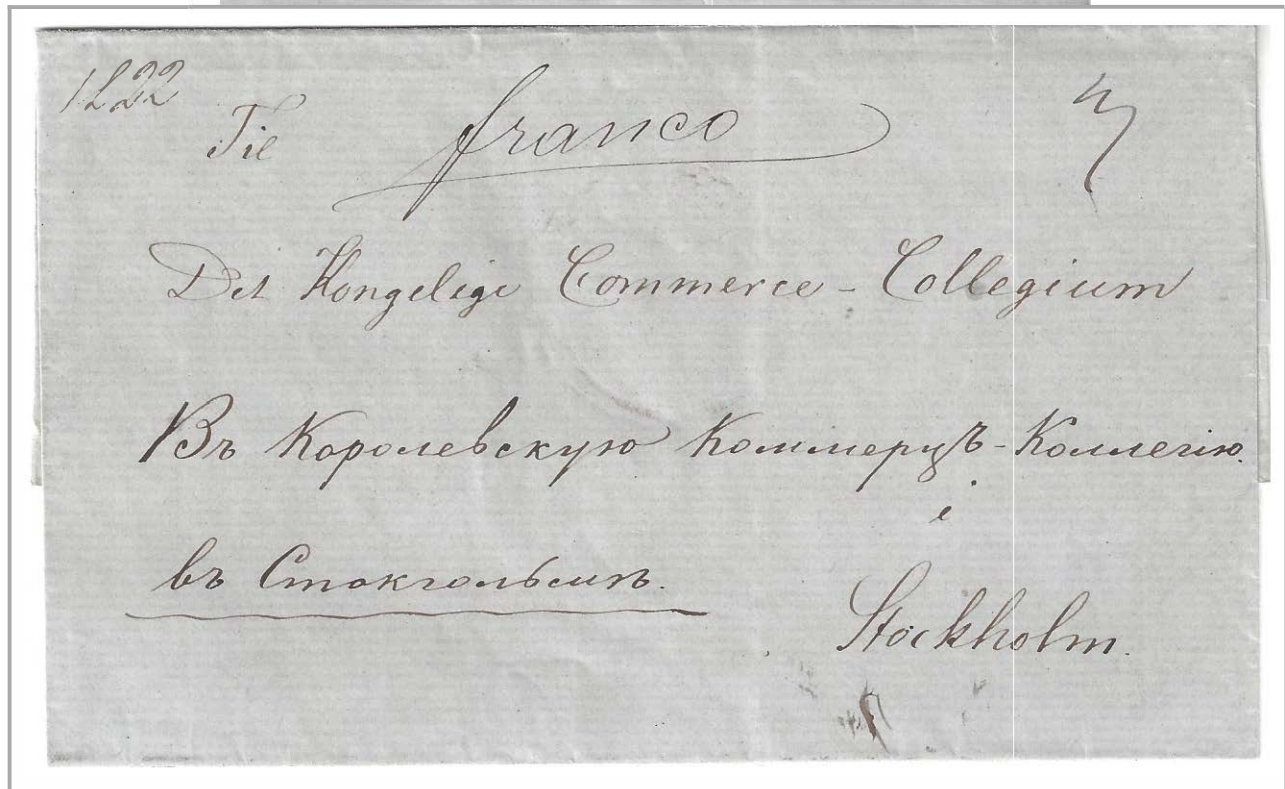 Til franco
Det Kongelige Commerce - Collegium
Въ Королевскую Коммерцъ-Коллегію.
i
въ Стокгольмѣ.
Stockholm.